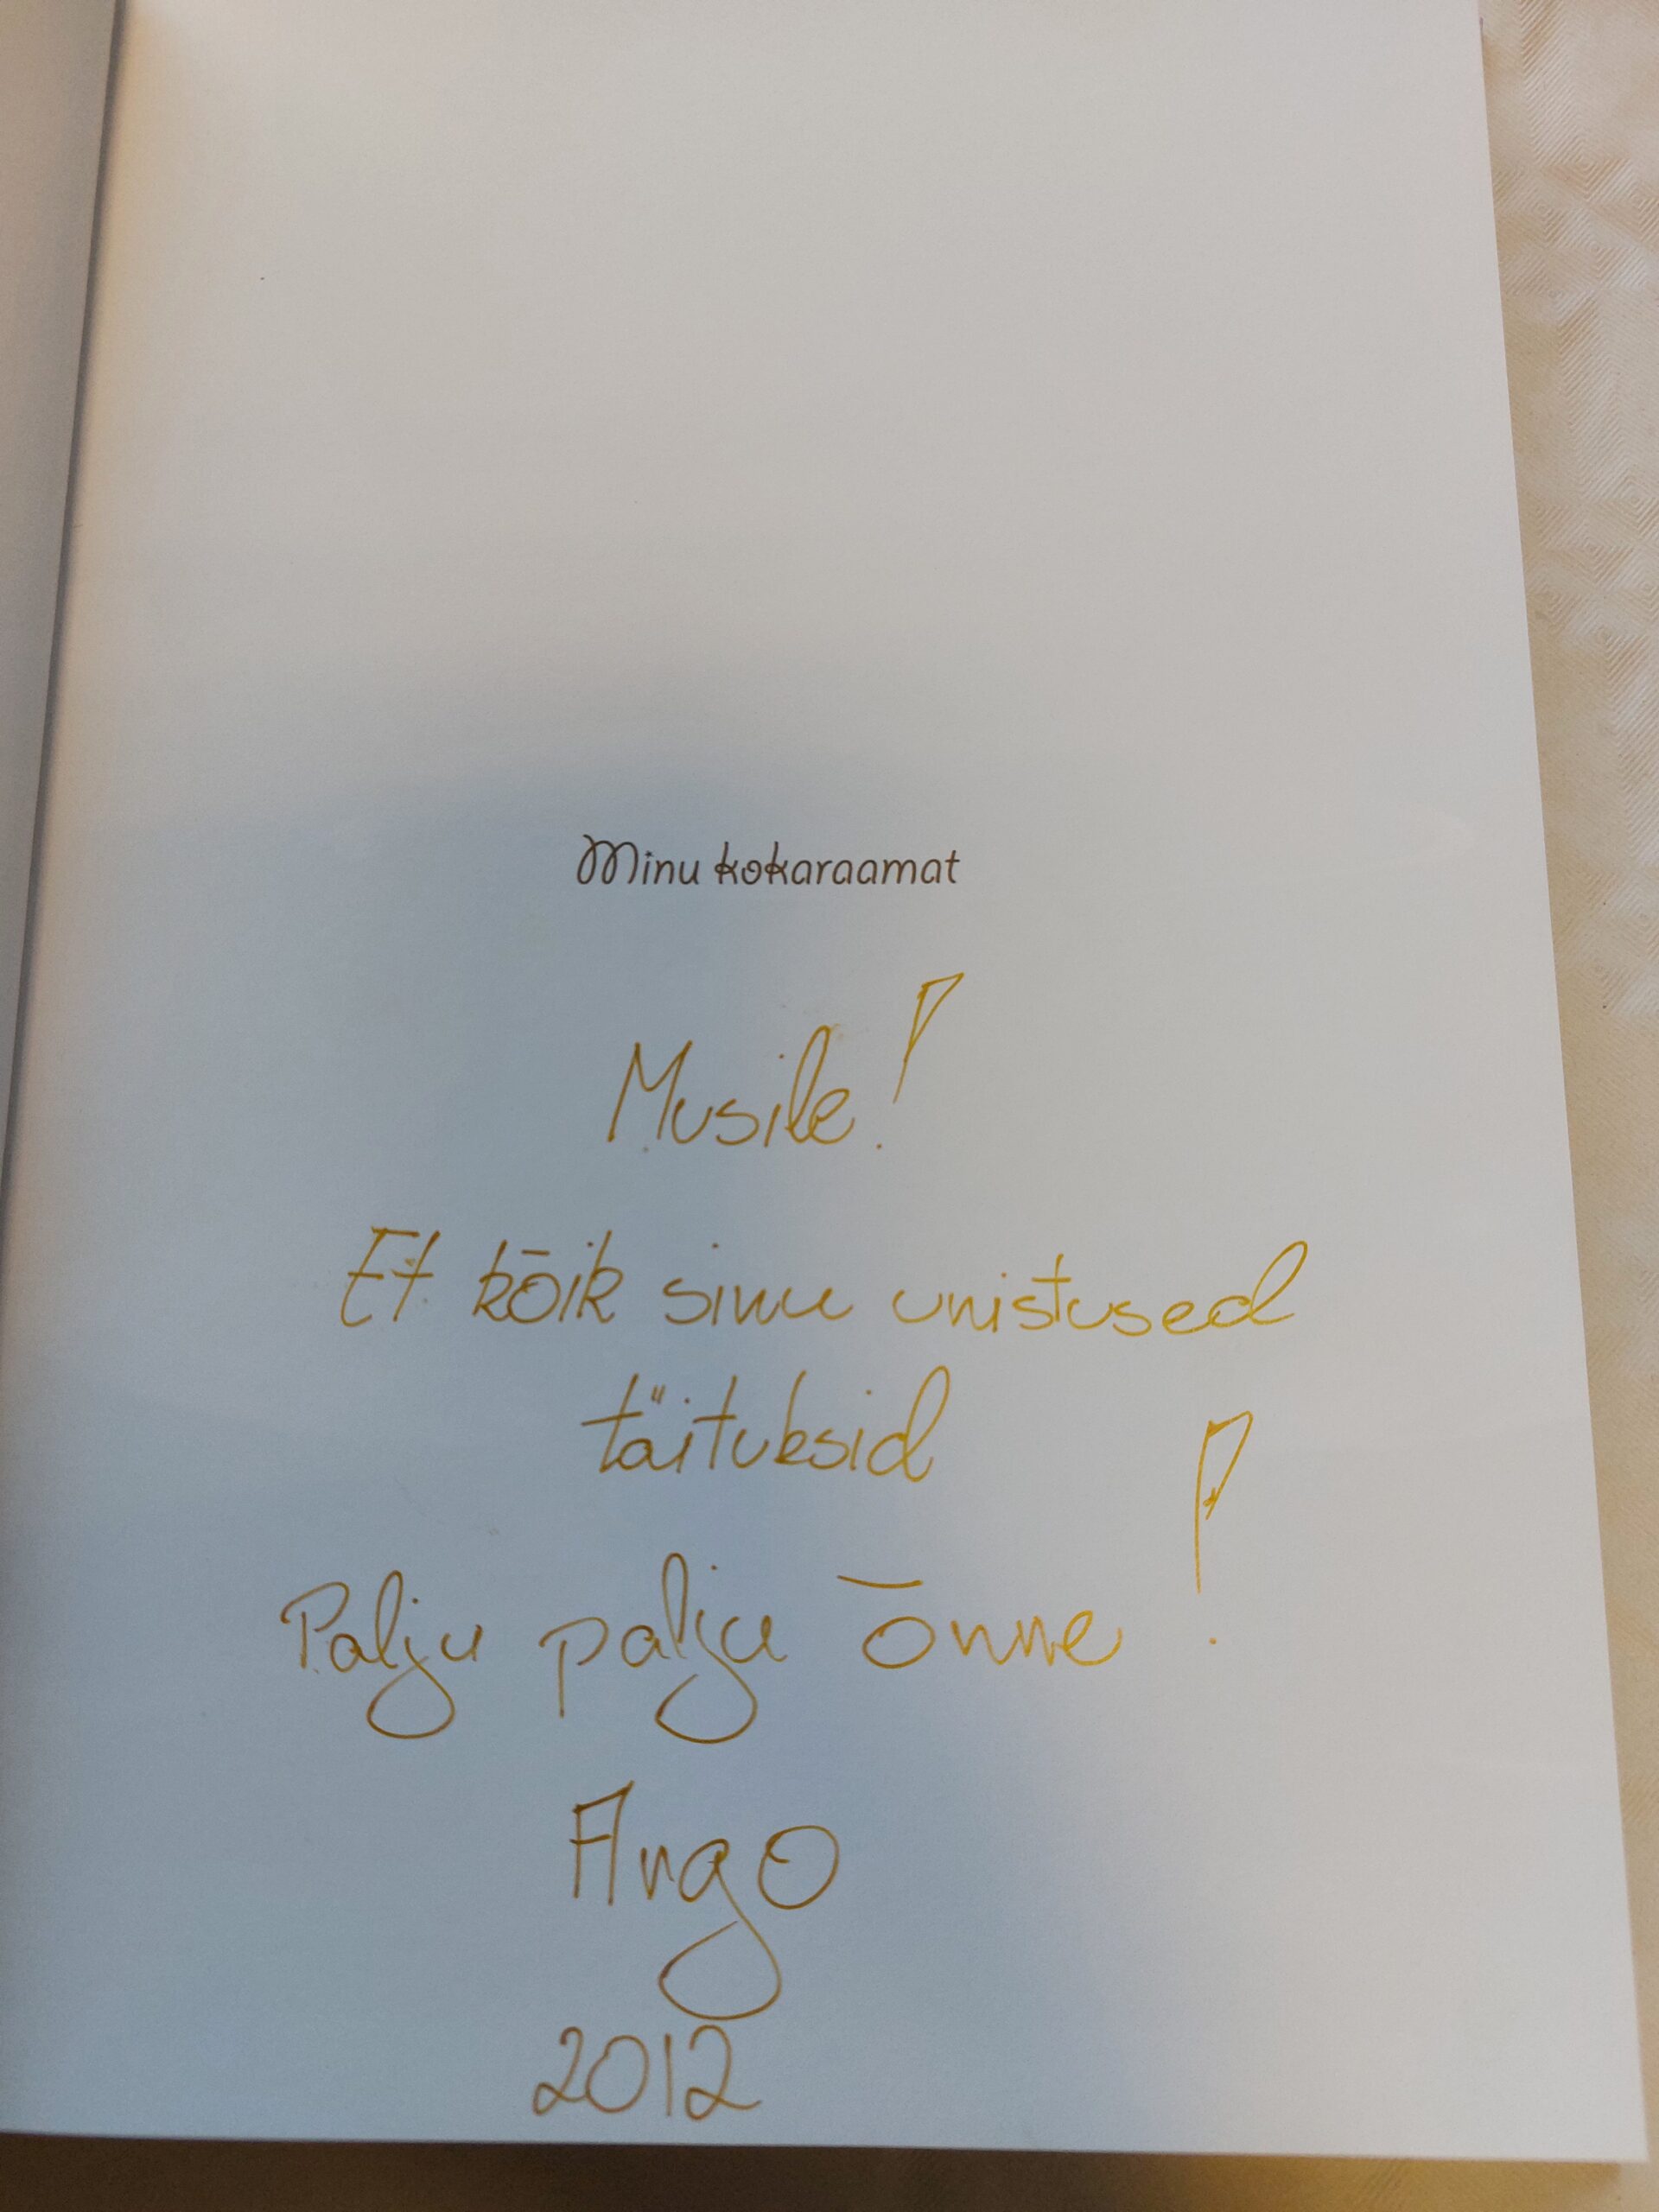 Minu kokaraamat
Musile!
Et kõik sinu unistused
täituksid
Palju palju õnne!
Argo
2012